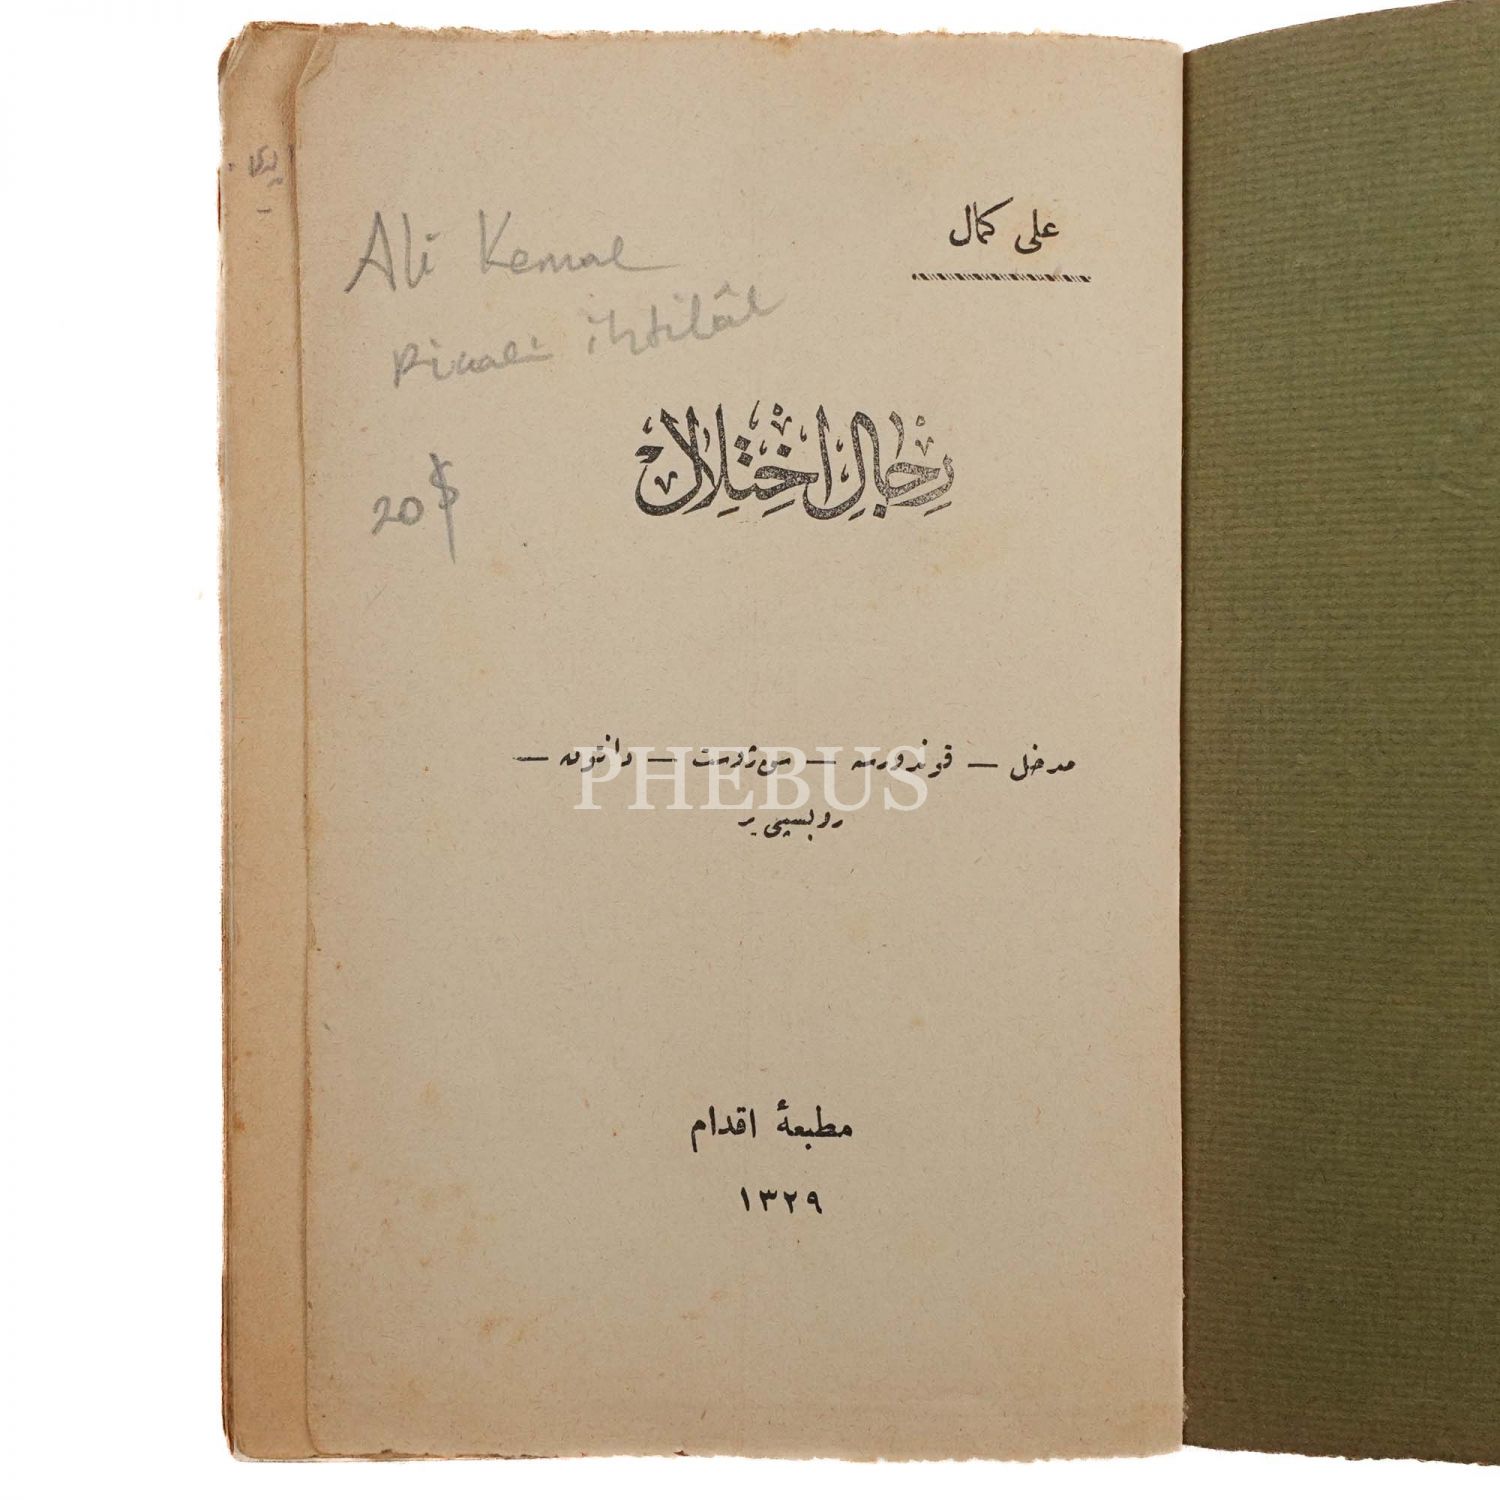 على كمال
Ali Kemal
Ricali ihtilâl
رِجَالِ اِخْتِلَال
20$
مدخل — قوندورسه — سن ژوست — دانتون —
PHEBUS
روبسپير
مطبعهٔ اقدام
١٣٢٩